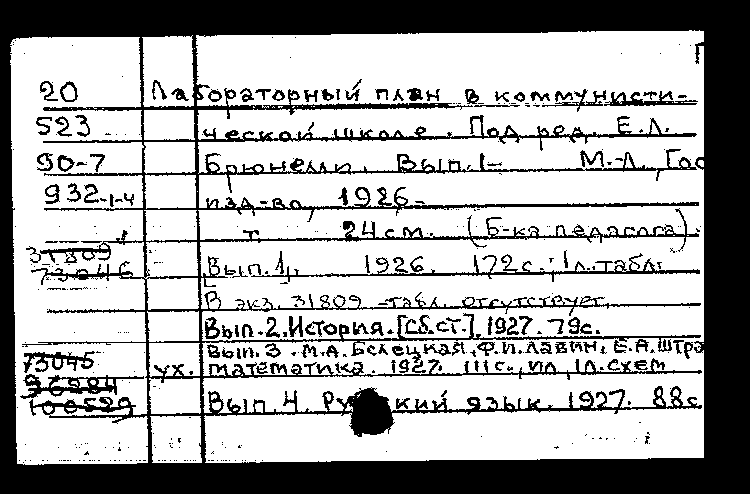 20 Лабораторный план в коммунисти-
523 ческой школе. Под ред. Е.Л.
90-7 Брюнелли. Вып.1- М.-Л., Гос
932-1-4 изд-во, 1926-
т. 24 см. (Б-ка педагога).
31809
73046 Вып.1. 1926. 172 с.; 1 л. табл.
В экз. 31809 табл. отсутствует.
Вып.2. История. [Сб.ст.], 1927. 79с.
73045 Вып.3. М.А. Белецкая, Ф.И. Лавин, Е.А. Штра
ух. математика. 1927. 111 с., ил, 1л. схем
100529 Вып.4. Русский язык. 1927. 88с